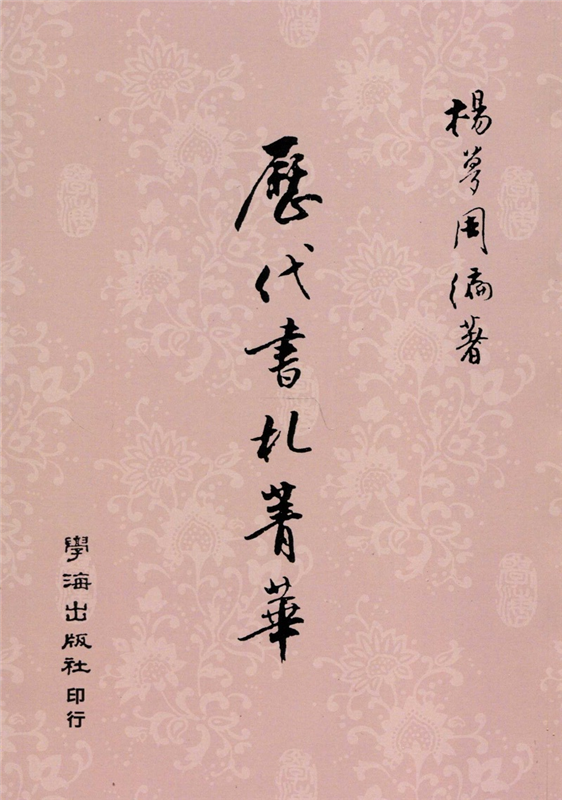 楊夢周編著
歷代書札菁華
學海出版社印行